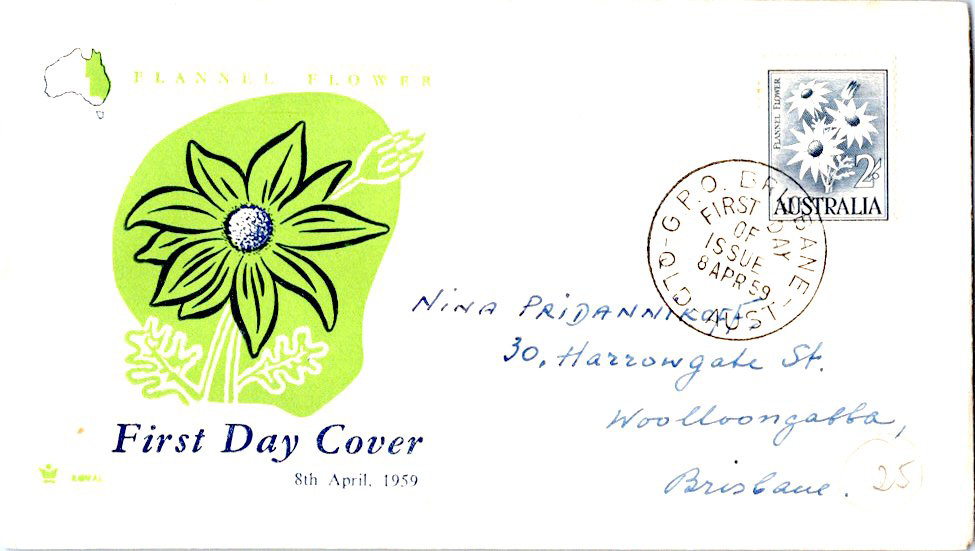 FLANNEL FLOWER
First Day Cover
8th April, 1959
ROYAL
FLANNEL FLOWER
2/-
AUSTRALIA
G.P.O. BRISBANE - QLD - AUST.
FIRST DAY
OF
ISSUE
8 APR 59
NINA PRIDANNIKOFF,
30, Harrowgate St.
Woolloongabba,
Brisbane.
25